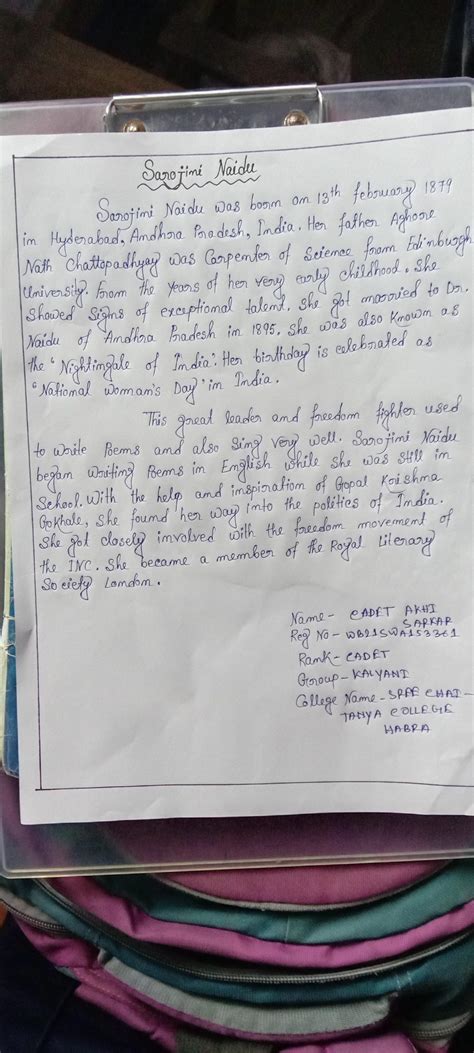 Sarojini Naidu
Sarojini Naidu was born on 13th february 1879
in Hyderabad, Andhra Pradesh, India. Her father Aghore
Nath Chattopadhyay was Carpenter of Science from Edinburgh
University. From the years of her very early childhood. She
Showed Signs of exceptional talent. She got married to Dr.
Naidu of Andhra Pradesh in 1895. She was also known as
the 'Nightingale of India'. Her birthday is celebrated as
'National Woman's Day' in India.
This great leader and freedom fighter used
to write Poems and also Sing very well. Sarojini Naidu
began writing Poems in English while She was Still in
School. With the help and inspiration of Gopal Krishna
Gokhale, She found her way into the politics of India.
She got closely involved with the freedom movement of
the INC. She became a member of the Royal Literary
Society London.
Name - CADET AKHI
SARKAR
Reg No - WB21SWA153361
Rank - CADET
Group - KALYANI
College Name - SREE CHAI-
TANYA COLLEGE
HABRA